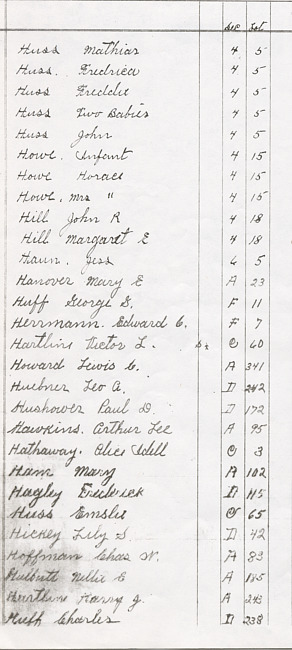 Sec Lot
Huss Mathias 4 5
Huss. Fredrica 4 5
Huss Freddie 4 5
Huss Two Babies 4 5
Huss John 4 5
Howe. Infant 4 15
Howe Horace 4 15
Howe, Mrs " 4 15
Hill John R 4 18
Hill Margaret E 4 18
Haun. Jess 6 5
Hanover Mary E A 23
Huff George S. F 11
Herrmann. Edward C. F 7
Hartline Victor L. C 60
Howard Lewis C. A 341
Huebner Leo A. D 242
Hushower Paul D. D 172
Hawkins. Arthur Lee A 95
Hathaway. Alice Idell C 3
Ham Mary A 102
Hagley Frederick D 115
Huss Emslie C 65
Hickey Lily S. D 42
Hoffman Chas W. A 89
Nellie C A
Hartline Harry J. A 243
Huth Charles D 238